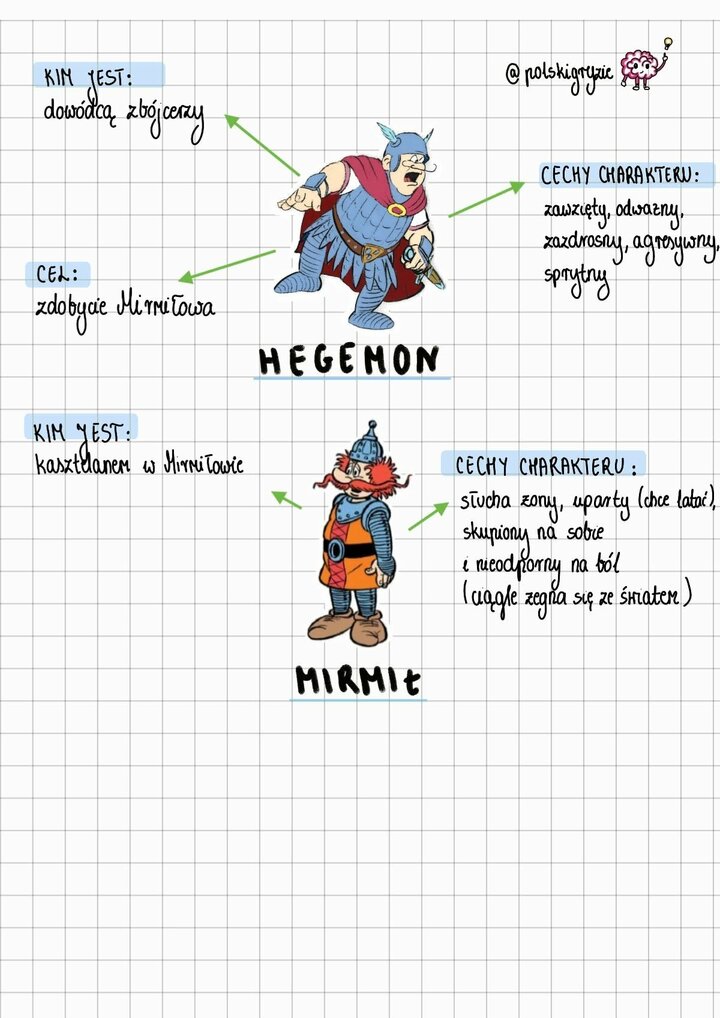 @polskigryzie
KIM JEST:
dowódcą zbójcerzy
CECHY CHARAKTERU:
zawzięty, odważny,
zazdrosny, agresywny,
sprytny
CEL:
zdobycie Mirmiłowa
HEGEMON
KIM JEST:
kasztelanem w Mirmiłowie
CECHY CHARAKTERU:
słucha żony, uparty (chce latać),
skupiony na sobie
i nieodporny na ból
(ciągle żegna się ze światem)
MIRMIŁ